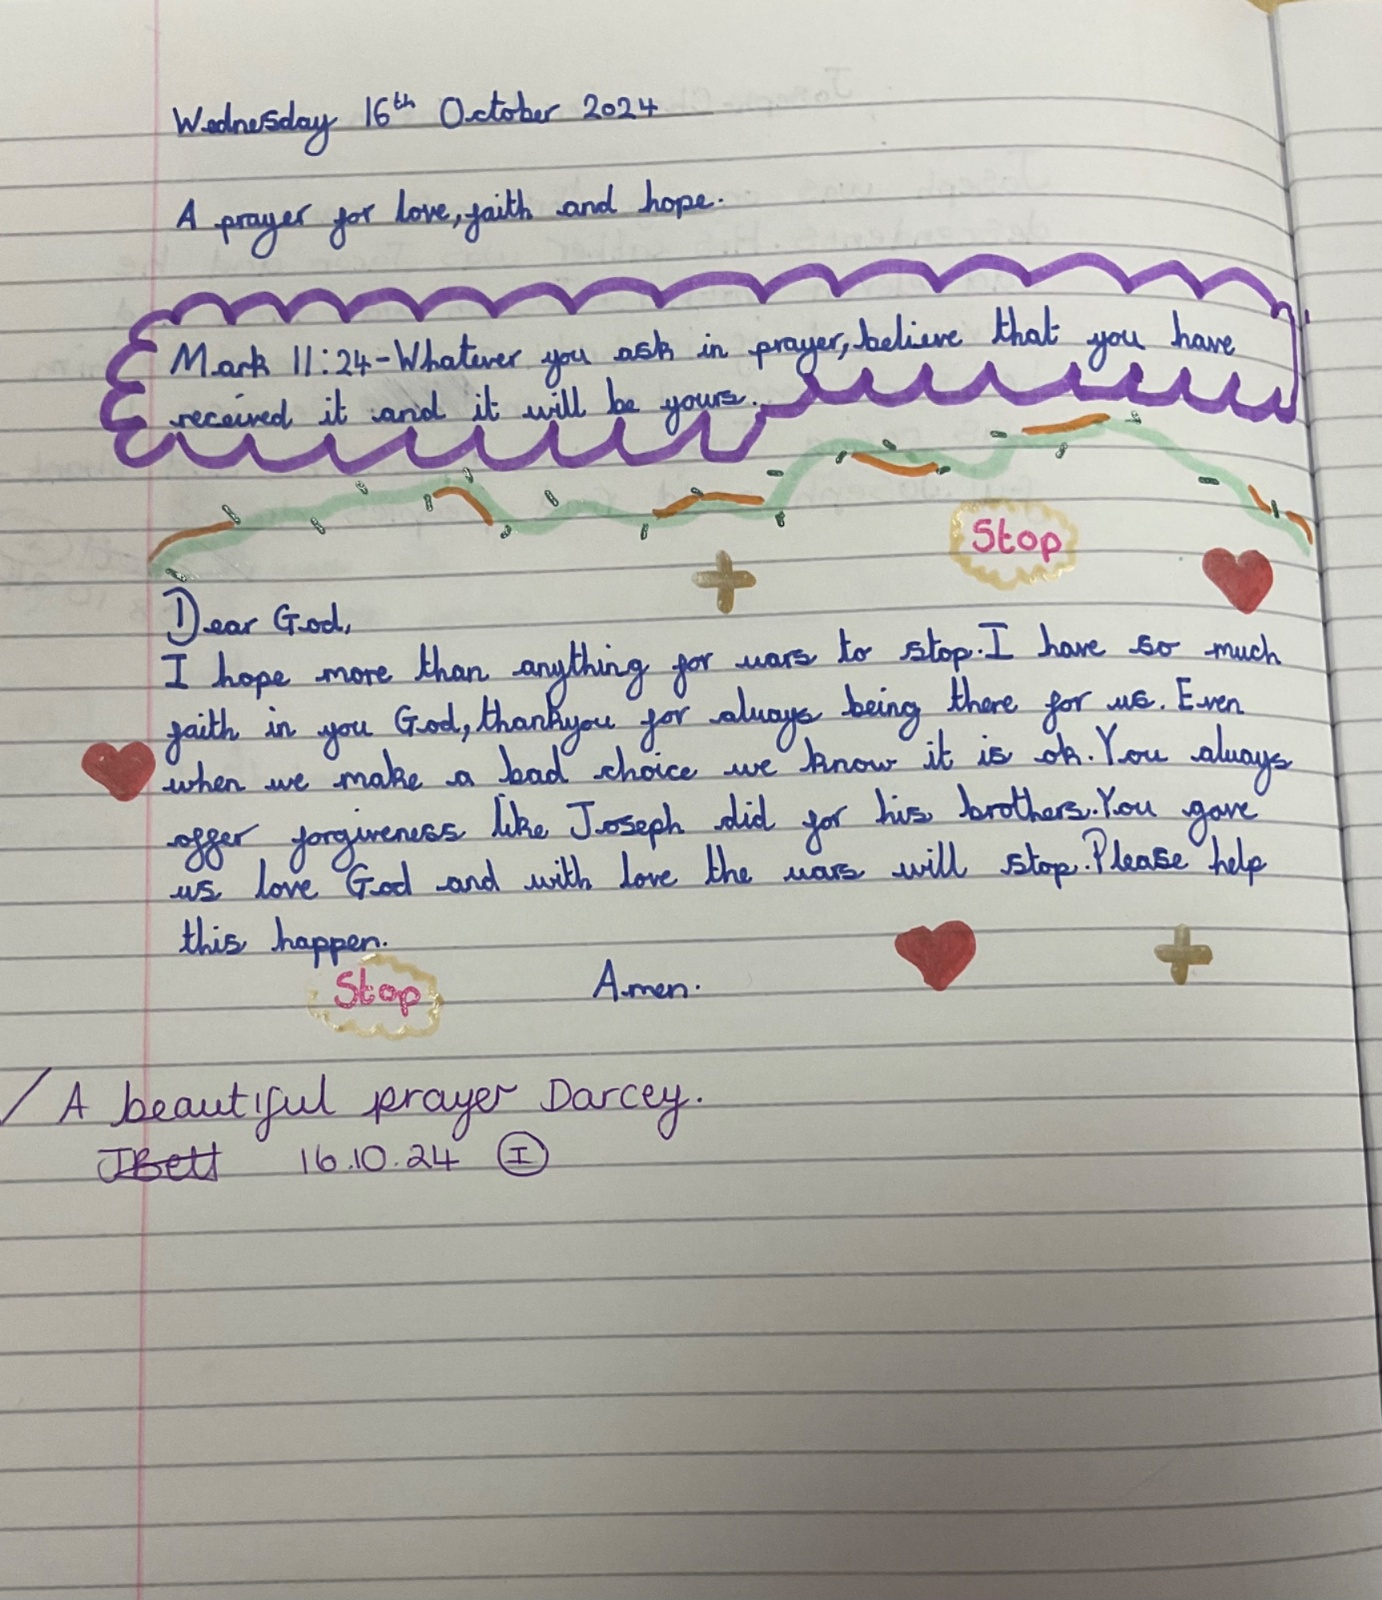 Wednesday 16th October 2024
A prayer for love, faith and hope.
Mark 11:24-Whatever you ask in prayer, believe that you have
received it and it will be yours.
Stop
Dear God,
I hope more than anything for wars to stop. I have so much
faith in you God, thankyou for always being there for us. Even
when we make a bad choice we know it is ok. You always
offer forgiveness like Joseph did for his brothers. You gave
us love God and with love the wars will stop. Please help
this happen.
Stop
Amen.
A beautiful prayer Darcey.
JBett 16.10.24 I